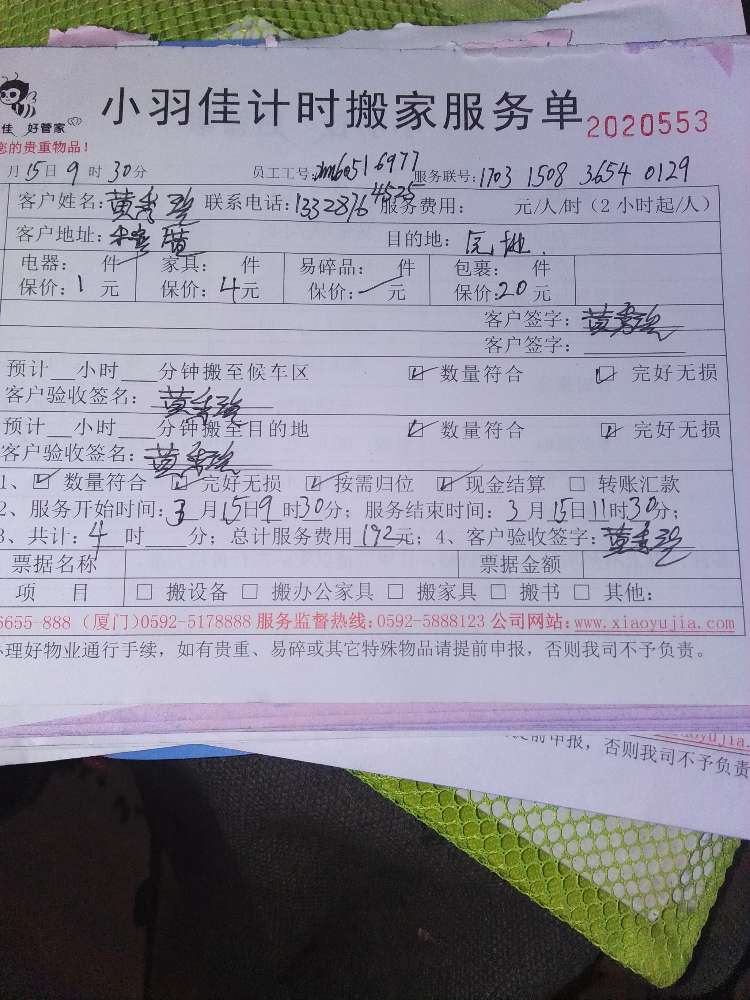 小羽佳计时搬家服务单 2020553
佳 好管家
您的贵重物品！
月15日9时30分 员工工号: 服务联号:1703 1508 3654 0129
客户姓名:黄秀 联系电话:13328764525 服务费用: 元/人/时（2小时起/人）
客户地址: 目的地:
电器: 件 家具: 件 易碎品: 件 包裹: 件
保价:1元 保价:4元 保价:一元 保价:20元
客户签字:黄秀
客户签字:
预计__小时___分钟搬至候车区 ☑ 数量符合 ☑ 完好无损
客户验收签名:黄秀
预计__小时___分钟搬至目的地 ☑ 数量符合 ☑ 完好无损
客户验收签名:黄秀
1、☑ 数量符合 ☑ 完好无损 ☑ 按需归位 ☑ 现金结算 □ 转账汇款
2、服务开始时间:3月15日9时30分；服务结束时间:3月15日11时30分；
3、共计:4时___分；总计服务费用192元；4、客户验收签字:黄秀
票据名称 票据金额
项 目 □ 搬设备 □ 搬办公家具 □ 搬家具 □ 搬书 □ 其他:
6655-888（厦门）0592-5178888 服务监督热线:0592-5888123 公司网站:www.xiaoyujia.com
理好物业通行手续，如有贵重、易碎或其它特殊物品请提前申报，否则我司不予负责。
前申报，否则我司不予负责